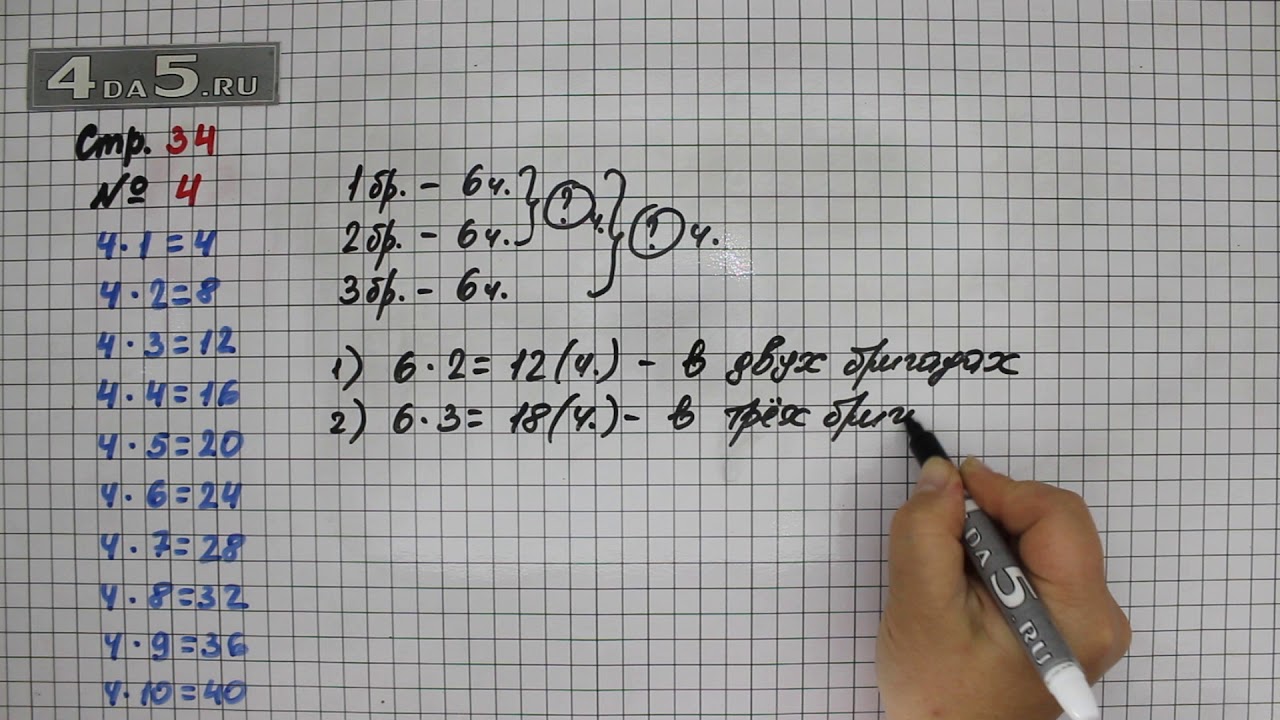 4DA5.RU
Стр. 34
№ 4
4·1=4
4·2=8
4·3=12
4·4=16
4·5=20
4·6=24
4·7=28
4·8=32
4·9=36
4·10=40
1бр. - 6ч. } ? ч. } ? ч.
2бр. - 6ч.
3бр. - 6ч.
1) 6·2=12(ч.) - в двух бригадах
2) 6·3=18(ч.) - в трёх бриг
DA5.RU